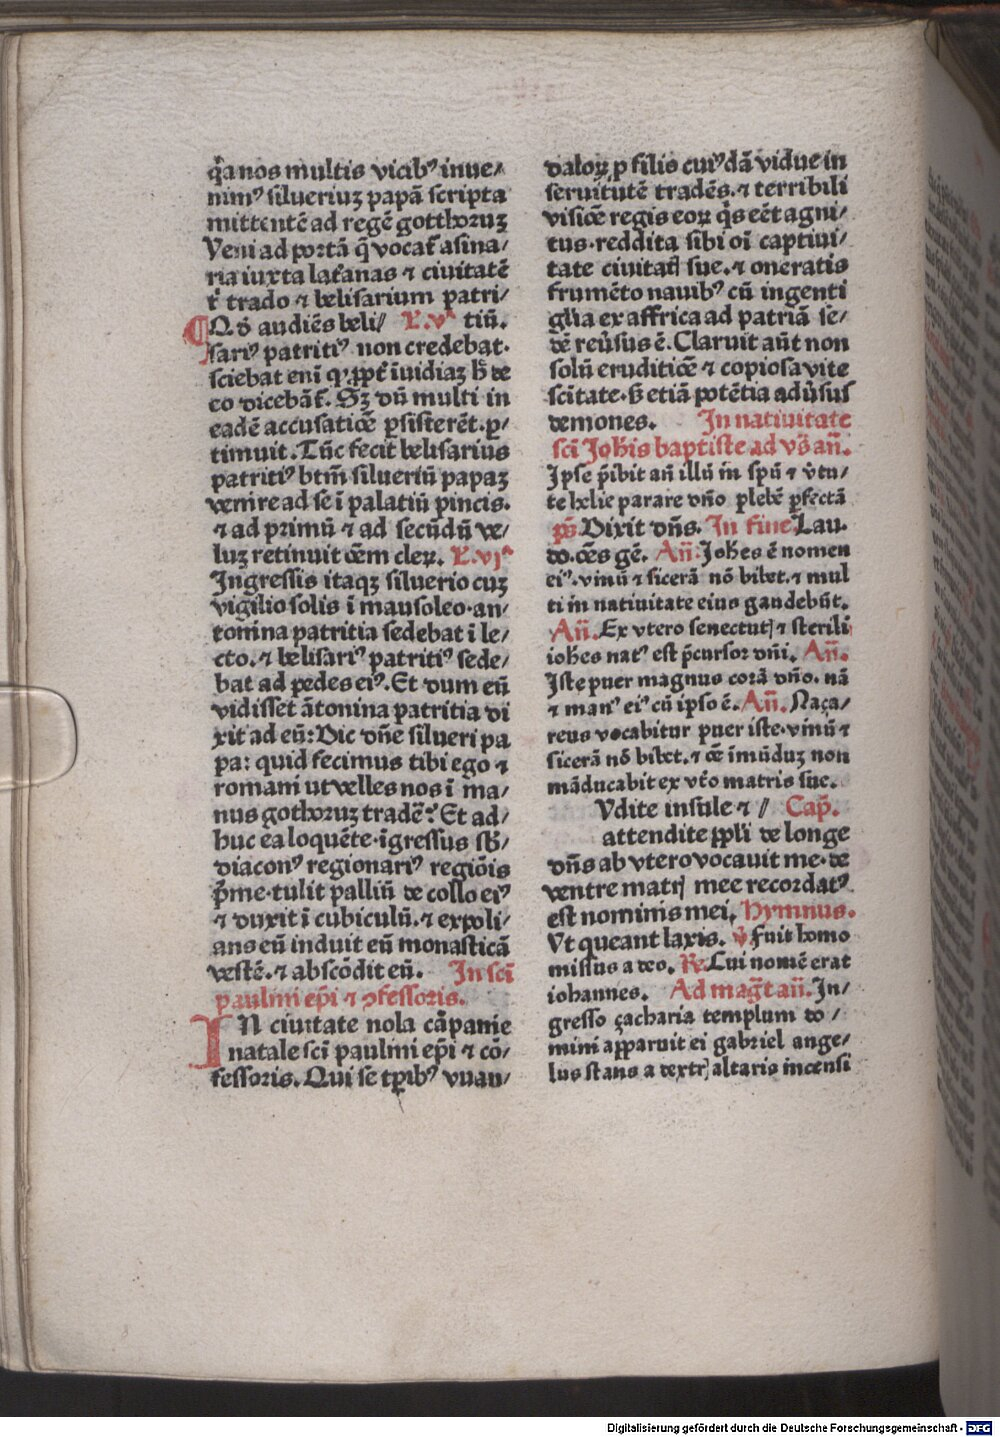 q̇a nos multis vicibꝰ inue/
nimꝰ silueriuꝫ papā scripta
mittentē ad regē gotthoruꝫ
Veni ad portā q̄ vocat᷑ asina/
ria iuxta lat᷑anas ⁊ ciuitatē
t᷑ trado ⁊ belisarium patri/
¶ Q. ꝺ̄ audiēs beli/ L̃.vᵃ tiū.
sariꝰ patritiꝰ non credebat.
sciebat eni ꝙ ꝓpt᷑ īuidiaꝫ h̄ de
eo dicebāt᷑. Sꝫ dū multi in
eadē accusatiōe ꝑsisterēt.ꝑ/
timuit. Tūc fecit belisarius
patritiꝰ btm̄ silueriū papaꝫ
venire ad se ī palatiū pincis.
⁊ ad primū ⁊ ad secūdū ve/
luꝫ retinuit oēm cleꝝ. L̃.vjᵃ
Ingressis itaqꝫ siluerio cuꝫ
vigilio solis ī mausoleo.an/
tonina patritia sedebat ī le/
cto.⁊ belisariꝰ patritiꝰ sede/
bat ad pedes eiꝰ. Et dum eū
vidisset ātonina patritia di
xit ad eū: Dic dn̄e silueri pa
pa: quid fecimus tibi ego ⁊
romani ut velles nos ī ma/
nus gothoruꝫ tradē᷑? Et ad/
huc ea loquēte.īgressus sb̄/
diaconꝰ regionariꝰ regiōis
p̄me.tulit palliū de collo eiꝰ
⁊ duxit ī cubiculū.⁊ expoli/
ans eū induit eū monasticā
vestē.⁊ abscōdit eū. In scī
paulini ep̄i ⁊ ꝯfessoris.
IN ciuitate nola cāpanie
natale scī paulini ep̄i ⁊ cō/
fessoris. Qui se tꝑibꝰ vuan/
daloꝝ ꝓ filio cuiꝰdā vidue in
seruitutē tradēs.⁊ terribili
visiōe regis eoꝝ q̇s eēt agni/
tus.reddita sibi oī captiui/
tate ciuitatꝭ sue.⁊ oneratis
frumēto nauibꝰ cū ingenti
gl̄ia ex affrica ad patriā se/
dē reūsus ē. Claruit aūt non
solū eruditiōe ⁊ copiosa vite
scītate.sꝫ etiā potētia aduersus
demones. In natiuitate
scī Joh̄is baptiste ad vs̄ an̄.
Ipse p̄ibit an̄ illū in spū ⁊ v̇tu/
te helie parare dn̄o plebē ꝑfectā
ps̄ Dixit dn̄s. In fine Lau.
do. oēs gē. An̄. Joh̄es ē nomen
eiꝰ.vinū ⁊ sicerā nō bibet.⁊ mul
ti in natiuitate eius gaudebūt.
An̄. Ex vtero senectutꝭ ⁊ sterili
ioh̄es natꝰ est p̄cursor dn̄i. An̄.
Iste puer magnus corā dn̄o. nā
⁊ manꝰ eiꝰ cū ipso ē. An̄. Naça/
reus vocabitur puer iste.vinū ⁊
sicerā nō bibet.⁊ oē īmūduꝫ non
māducabit ex vt᷑o matris sue.
Vdite insule ⁊ // Cap̄.
attendite ppl̄i de longe
dn̄s ab vtero vocauit me.de
ventre matrꝭ mee recordatꝰ
est nominis mei. Hymnus.
Vt queant laxis. v̇ Fuit homo
missus a deo. R̃. Cui nomē erat
iohannes. Ad mag̃t an̄. In/
gresso çacharia templum do/
mini apparuit ei gabriel ange/
lus stans a dextrꝭ altaris incensi
Digitalisierung gefördert durch die Deutsche Forschungsgemeinschaft - DFG